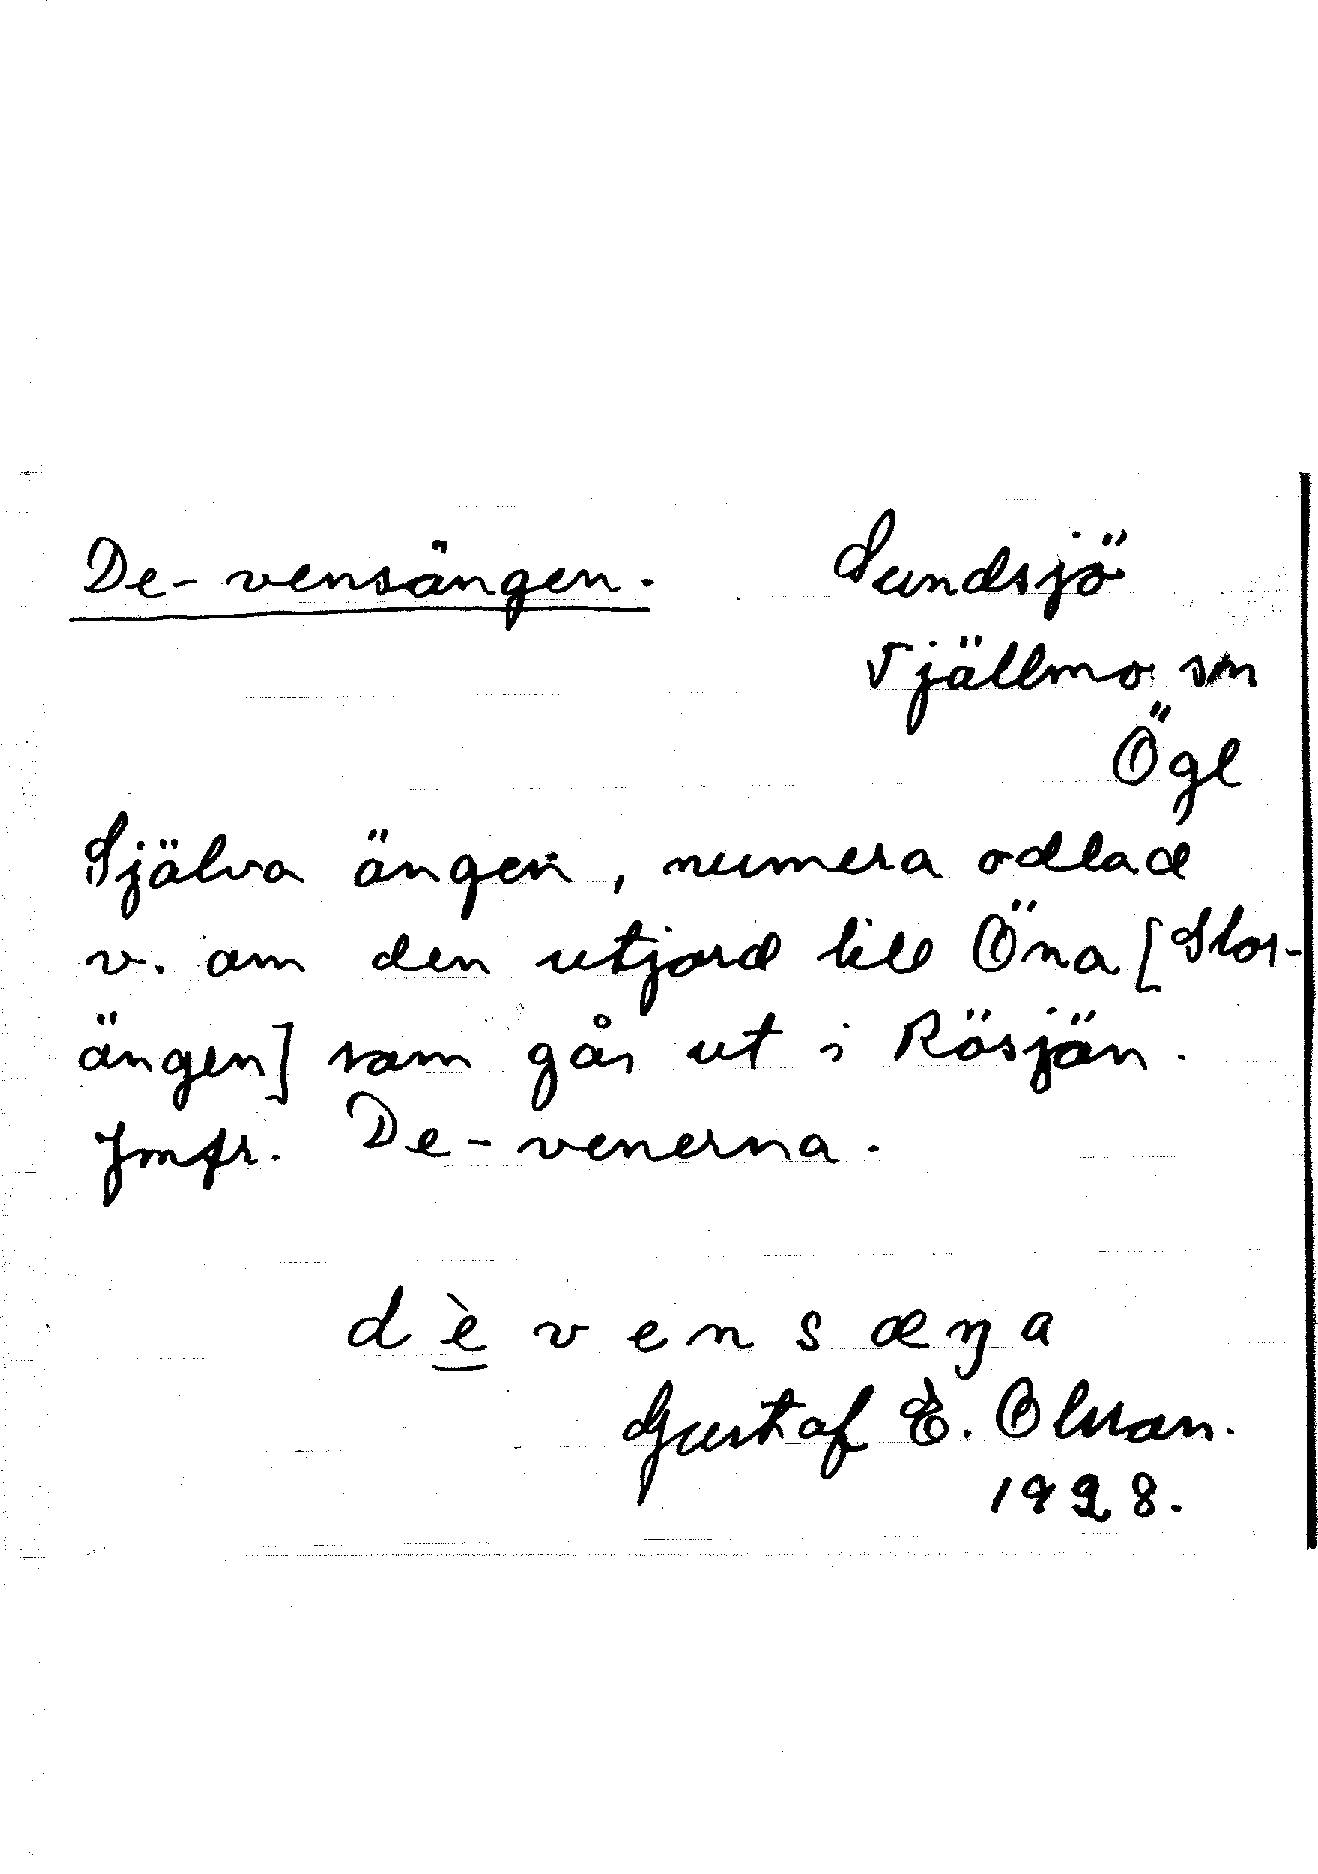 De-vensängen. Sundsjö
Tjällmo sn
Ögl
Själva ängen, numera odlad
v. om den utjord till Öna [Stor-
ängen] som går ut i Rösjön.
Jmfr. De-venerna.
d è v e n s æ ŋ a
Gustaf E. Olsson.
1928.